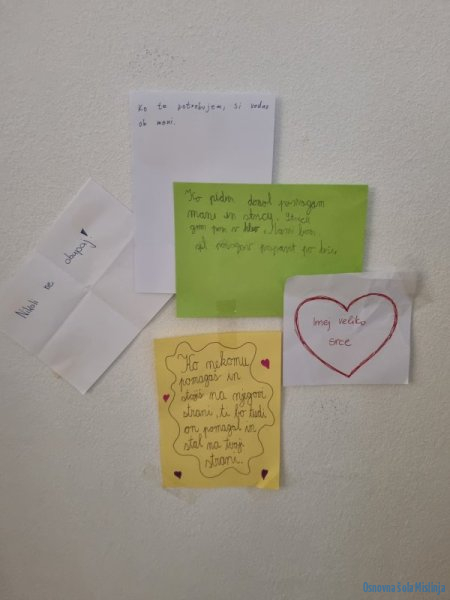 Ko te potrebujem, si vedno
ob meni.
Ko pridem domov pomagam
mami in
grem psa v
pospravit po hiši.
Nikoli ne obupaj!
Imej veliko
srce
Ko nekomu
pomagaš in
stojiš na njegovi
strani, ti bo tudi
on pomagal in
stal na tvoji
strani.
Osnovna šola Mislinja